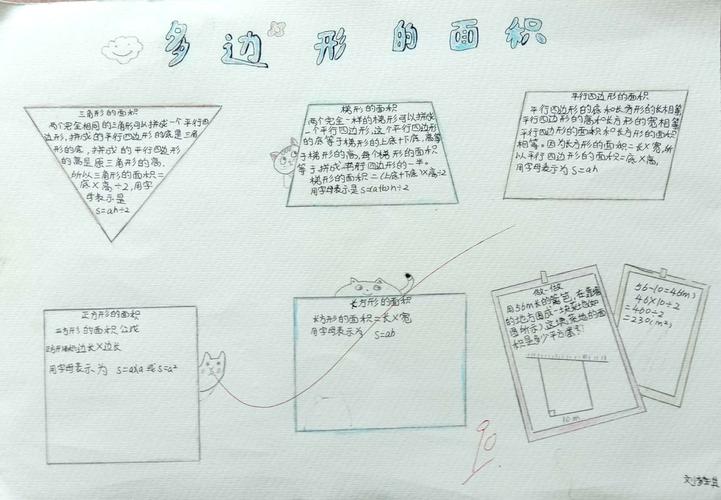 多边形的面积
三角形的面积
两个完全相同的三角形可以拼成一个平行四
边形,拼成的平行四边形的底是三角
形的底,拼成的平行四边形
的高是原三角形的高.
所以三角形的面积=
底×高÷2,用字
母表示是
S=ah÷2
梯形的面积
两个完全一样的梯形可以拼成
一个平行四边形,这个平行四边形
的底等于梯形的上底+下底,高等
于梯形的高,每个梯形的面积
等于拼成平行四边形的一半。
梯形的面积=(上底+下底)×高÷2
用字母表示是S=(a+b)h÷2
平行四边形的面积
平行四边形的底和长方形的长相等
平行四边形的高和长方形的宽相等
平行四边形的面积和长方形的面积
相等。因为长方形的面积=长×宽,所
以平行四边形的面积=底×高,
用字母表示为S=ah
正方形的面积
正方形的面积公式
边长×边长
用字母表示为 S=a×a 或S=a²
长方形的面积
长方形的面积=长×宽
用字母表示为 S=ab
做一做
用56m长的篱笆,在靠墙
的地方围成一块菜地(如
图所示),这块菜地的面
积是多少平方米?
10m
56-10=46(m)
46×10÷2
=460÷2
=230(m²)
90